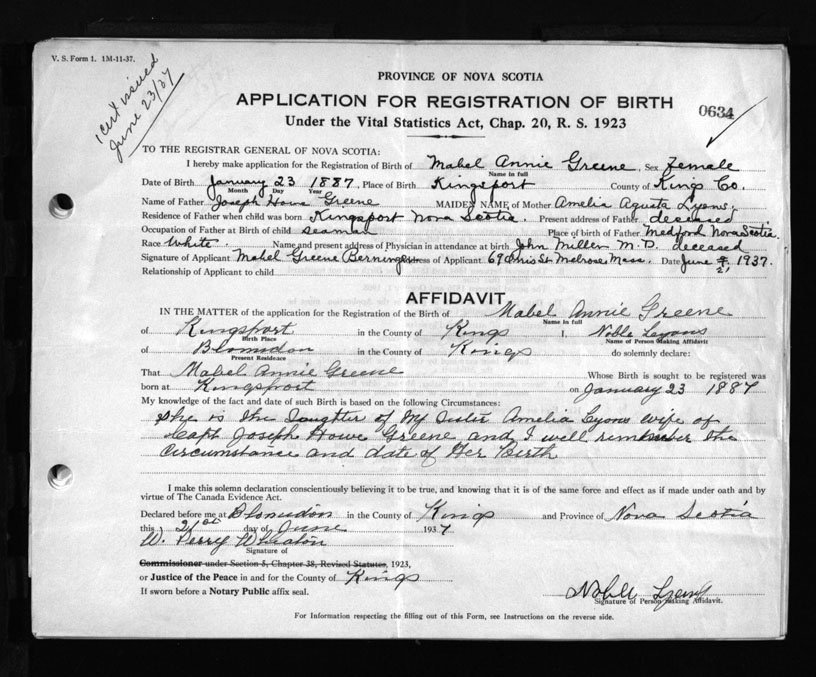 V. S. Form 1. 1M-11-37.
Cert issued
June 23/37
PROVINCE OF NOVA SCOTIA
APPLICATION FOR REGISTRATION OF BIRTH
0634
Under the Vital Statistics Act, Chap. 20, R. S. 1923
TO THE REGISTRAR GENERAL OF NOVA SCOTIA:
I hereby make application for the Registration of Birth of Mabel Annie Greene, Sex Female
Name in full
Date of Birth January 23 1887, Place of Birth Kingsport County of Kings Co.
Month Day Year
Name of Father Joseph Howe Greene MAIDEN NAME of Mother Amelia Agusta Lyons.
Residence of Father when child was born Kingsport Nova Scotia. Present address of Father deceased
Occupation of Father at Birth of child seaman Place of birth of Father Medford Nova Scotia.
Race White. Name and present address of Physician in attendance at birth John Miller M.D. deceased
Signature of Applicant Mabel Greene Berninger Address of Applicant 69 St Melrose Mass. Date June 21 1937.
Relationship of Applicant to child
AFFIDAVIT
IN THE MATTER of the application for the Registration of the Birth of Mabel Annie Greene
Name in full
of Kingsport in the County of Kings I, Noble Lyons
Birth Place Name of Person Making Affidavit
of Blomidon in the County of Kings do solemnly declare:
Present Residence
That Mabel Annie Greene Whose Birth is sought to be registered was
born at Kingsport on January 23 1887
My knowledge of the fact and date of such Birth is based on the following Circumstances:
She is the Daughter of My Sister Amelia Lyons wife of
Capt Joseph Howe Greene and I well remember the
Circumstance and date of Her Birth
I make this solemn declaration conscientiously believing it to be true, and knowing that it is of the same force and effect as if made under oath and by
virtue of The Canada Evidence Act.
Declared before me at Blomidon in the County of Kings and Province of Nova Scotia
this 21st day of June 1937
W. Perry Wheaton
Signature of
Commissioner under Section 5, Chapter 38, Revised Statutes, 1923,
or Justice of the Peace in and for the County of Kings
If sworn before a Notary Public affix seal.
Noble Lyons
Signature of Person Making Affidavit.
For Information respecting the filling out of this Form, see Instructions on the reverse side.